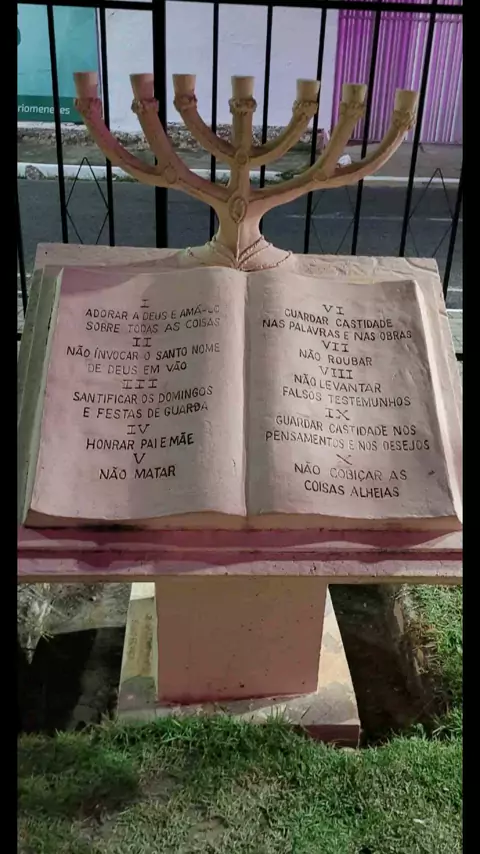 riomenezes
I
ADORAR A DEUS E AMÁ-LO
SOBRE TODAS AS COISAS
II
NÃO INVOCAR O SANTO NOME
DE DEUS EM VÃO
III
SANTIFICAR OS DOMINGOS
E FESTAS DE GUARDA
IV
HONRAR PAI E MÃE
V
NÃO MATAR
VI
GUARDAR CASTIDADE
NAS PALAVRAS E NAS OBRAS
VII
NÃO ROUBAR
VIII
NÃO LEVANTAR
FALSOS TESTEMUNHOS
IX
GUARDAR CASTIDADE NOS
PENSAMENTOS E NOS DESEJOS
X
NÃO COBIÇAR AS
COISAS ALHEIAS